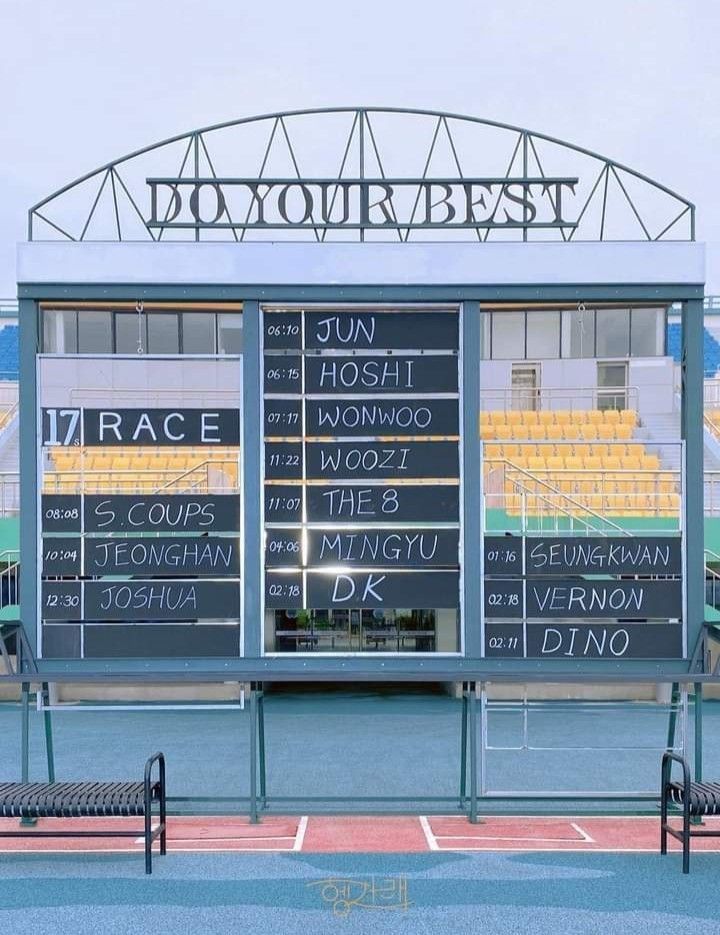 DO YOUR BEST
17s RACE
08:08 S.COUPS
10:04 JEONGHAN
12:30 JOSHUA
06:10 JUN
06:15 HOSHI
07:17 WONWOO
11:22 WOOZI
11:07 THE 8
04:06 MINGYU
02:18 D.K
01:16 SEUNGKWAN
02:18 VERNON
02:11 DINO
헹가래